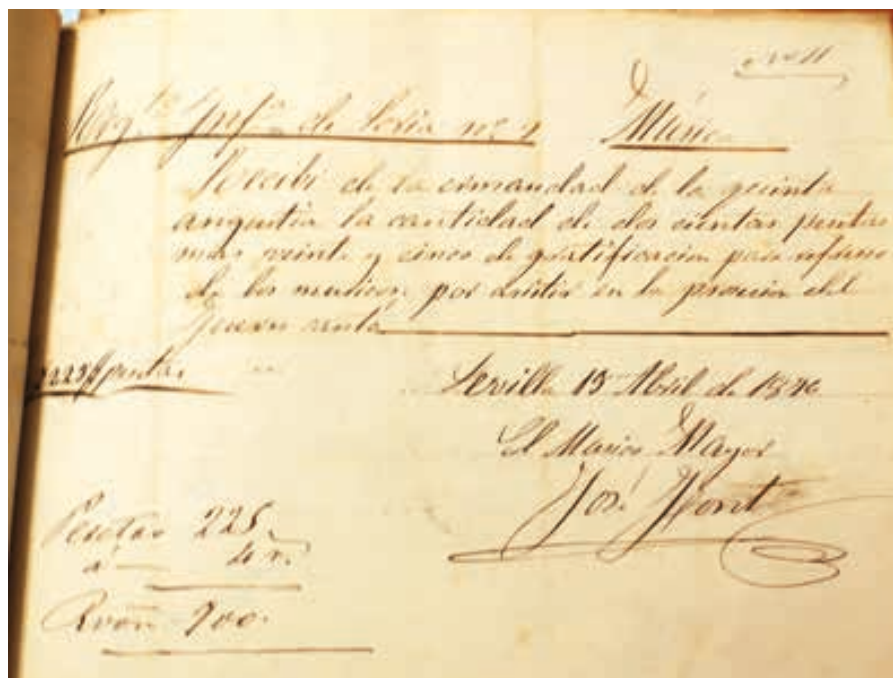 Nº 11
Regto Infa de Soria nº 9 Música
Recibí de la ermandad de la quinta
angustia la cantidad de dos cientas pesetas
mas veinte y cinco de gratificacion para refresco
de los musicos por asistir en la procesion del
jueves santo
225 pesetas
Sevilla 15 Abril de 1876
El Musico Mayor
José Font
Pesetas 225
a 4 r.
Rvon 900.